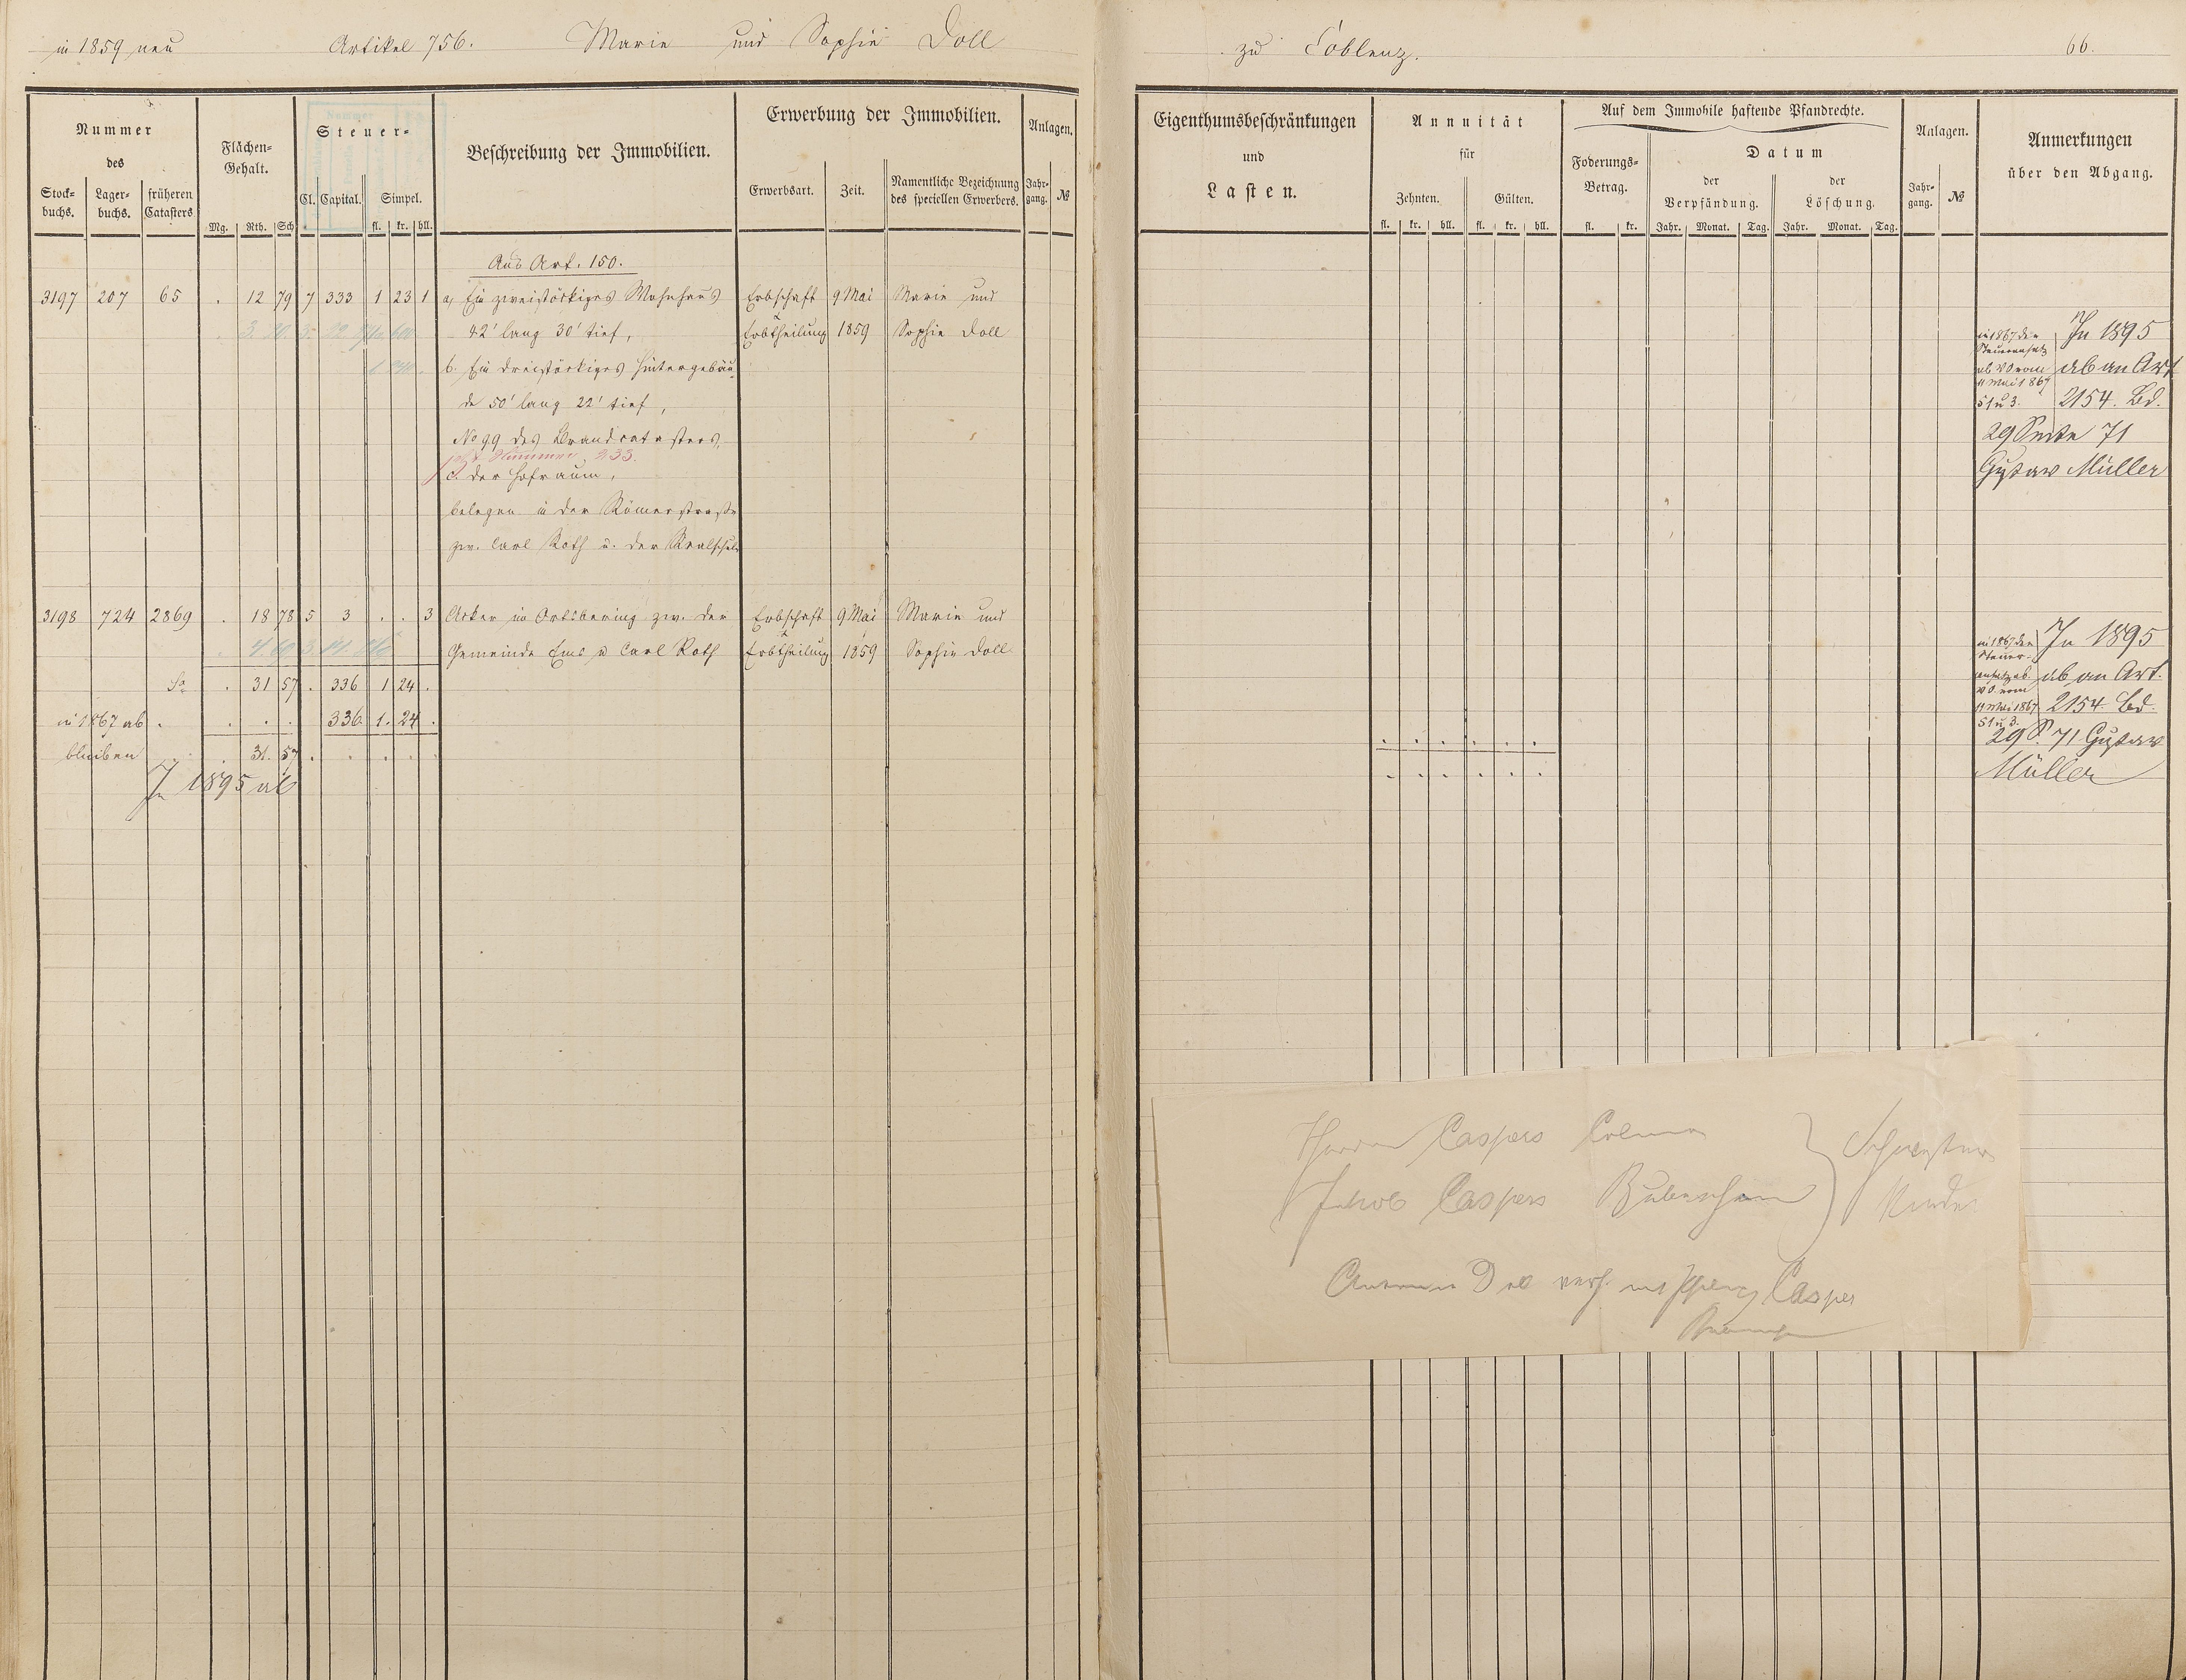 in 1859 neu Artikel 756. Marie und Sophie Doll zu Coblenz. 66.
Nummer
des
Stock-
buchs.
Lager-
buchs.
früheren
Catasters
Flächen-
Gehalt.
Mg. Rth. Sch
Steuer-
Cl. Capital. Simpel.
fl. kr. hll.
Beschreibung der Immobilien.
Erwerbung der Immobilien.
Erwerbsart. Zeit.
Namentliche Bezeichnung
des speciellen Erwerbers.
Anlagen.
Jahr-
gang. №
Eigenthumsbeschränkungen
und
Lasten.
Annuität
für
Zehnten. Gülten.
fl. kr. hll. fl. kr. hll.
Auf dem Immobile haftende Pfandrechte.
Foderungs-
Betrag.
fl. kr.
Datum
der
Verpfändung.
Jahr. Monat. Tag.
der
Löschung.
Jahr. Monat. Tag.
Anlagen.
Jahr-
gang. №
Anmerkungen
über den Abgang.
Aus Art. 150.
3197 207 65 . 12 79 7 333 1 23 1 a, Ein zweistöckiges Wohnhaus Erbschaft 9 Mai Marie und
42' lang 30' tief, Erbtheilung 1859 Sophie Doll
b. Ein dreistöckiges Hintergebäu-
de 50' lang 22' tief,
No 99 des Brandcatasters,
jetzt Nummer 233.
c. der Hofraum,
belegen in der Römerstraße
zw. Carl Roth u. der Realschule
in 1867 der
Steueransatz
ab VO vom
11 Mai 1867
§1 u 3.
In 1895
ab an Art
2154. Bd.
29 Seite 71
Gustav Müller
3198 724 2869 . 18 78 5 3 . . 3 Acker im Ortsbering zw. der Erbschaft 9 Mai Marie und
Gemeinde Ems u Carl Roth Erbtheilung 1859 Sophie Doll
Sa . 31 57 . 336 1 24 .
in 1867 ab . . . . 336. 1. 24 .
bleiben . 31. 57 . . . . .
In 1895 ab
in 1867 der
Steuer-
ansatz ab
VO vom
11 Mai 1867
§1 u 3.
In 1895
ab an Art.
2154. Bd.
29 S. 71 Gustav
Müller
Caspers
Jakob Caspers
Kinder
Doll Casper